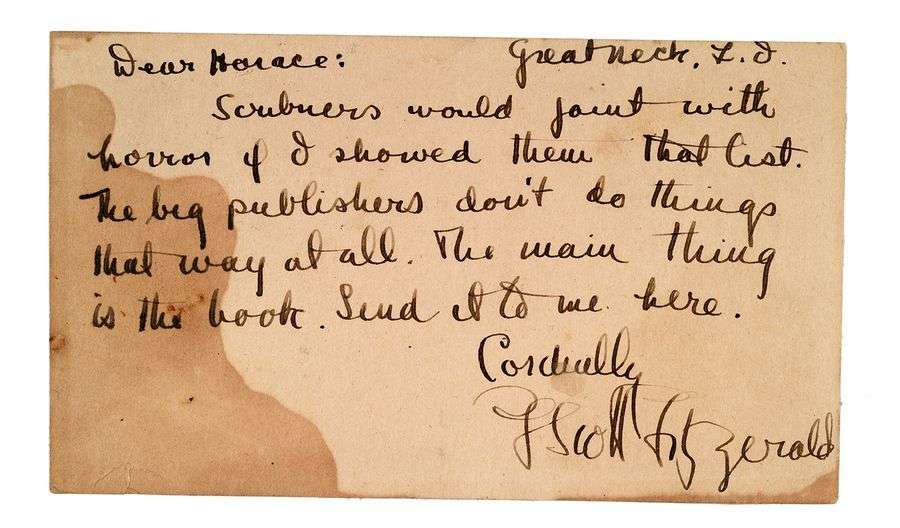 Dear Horace: Great Neck, L. I.
Scribners would faint with
horror if I showed them that list.
The big publishers don't do things
that way at all. The main thing
is the book. Send it to me here.
Cordially
F Scott Fitzgerald